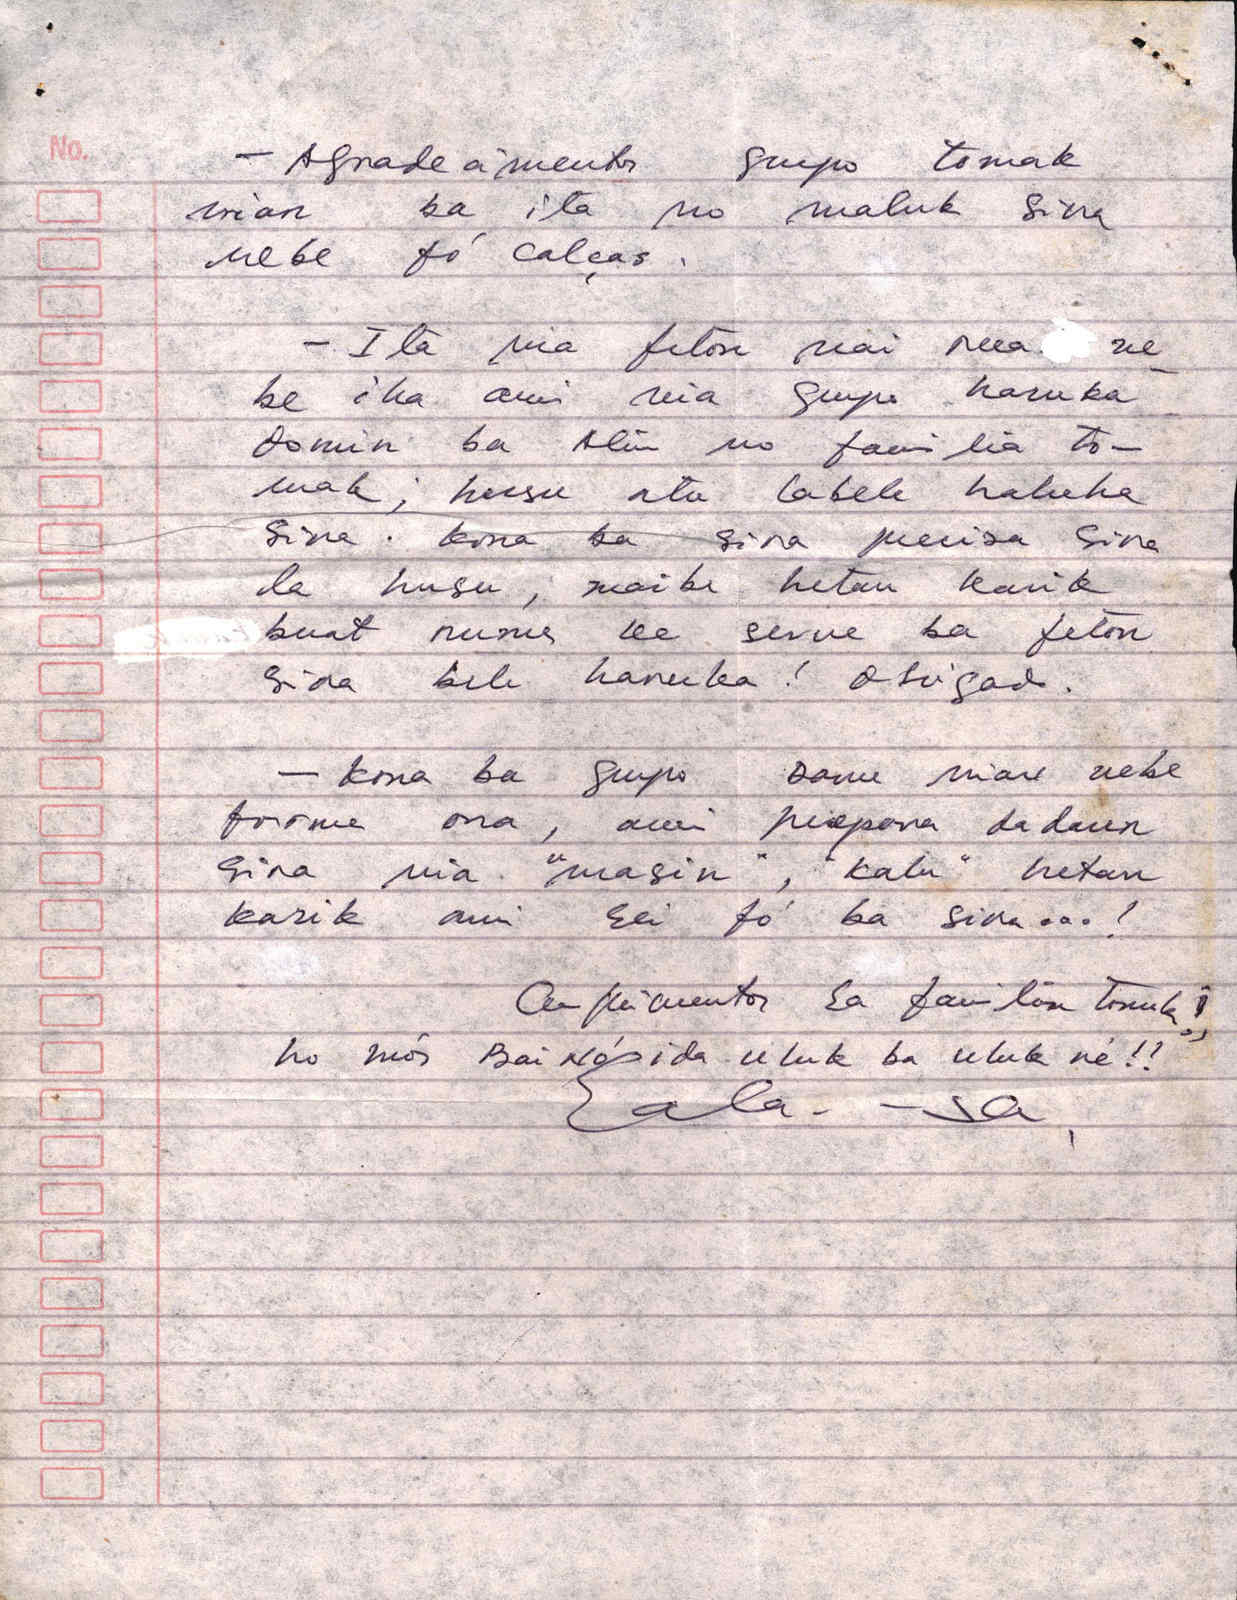 No.
- Agradecimentos grupo tomak
nian ba ita no maluk sira
nebe fó calças.
- Ita nia feton nai rua ne
be iha ami nia grupo haruka
Domin ba Alin no familia to-
mak; husu atu labele haluha
sira. Kona ba sira precisa sira
la husu, maibe hetan karik
buat ruma be serve ba feton
sira bele haruka! Obrigado.
- Kona ba grupo nian nebe
forma ona, ami propona dadaun
sira nia "masin", "kalu" hetan
karik ami sei fó ba sira...!
Cumprimentos ba familia tomak!
ho mós Bainó sida uluk ba uluk né!!